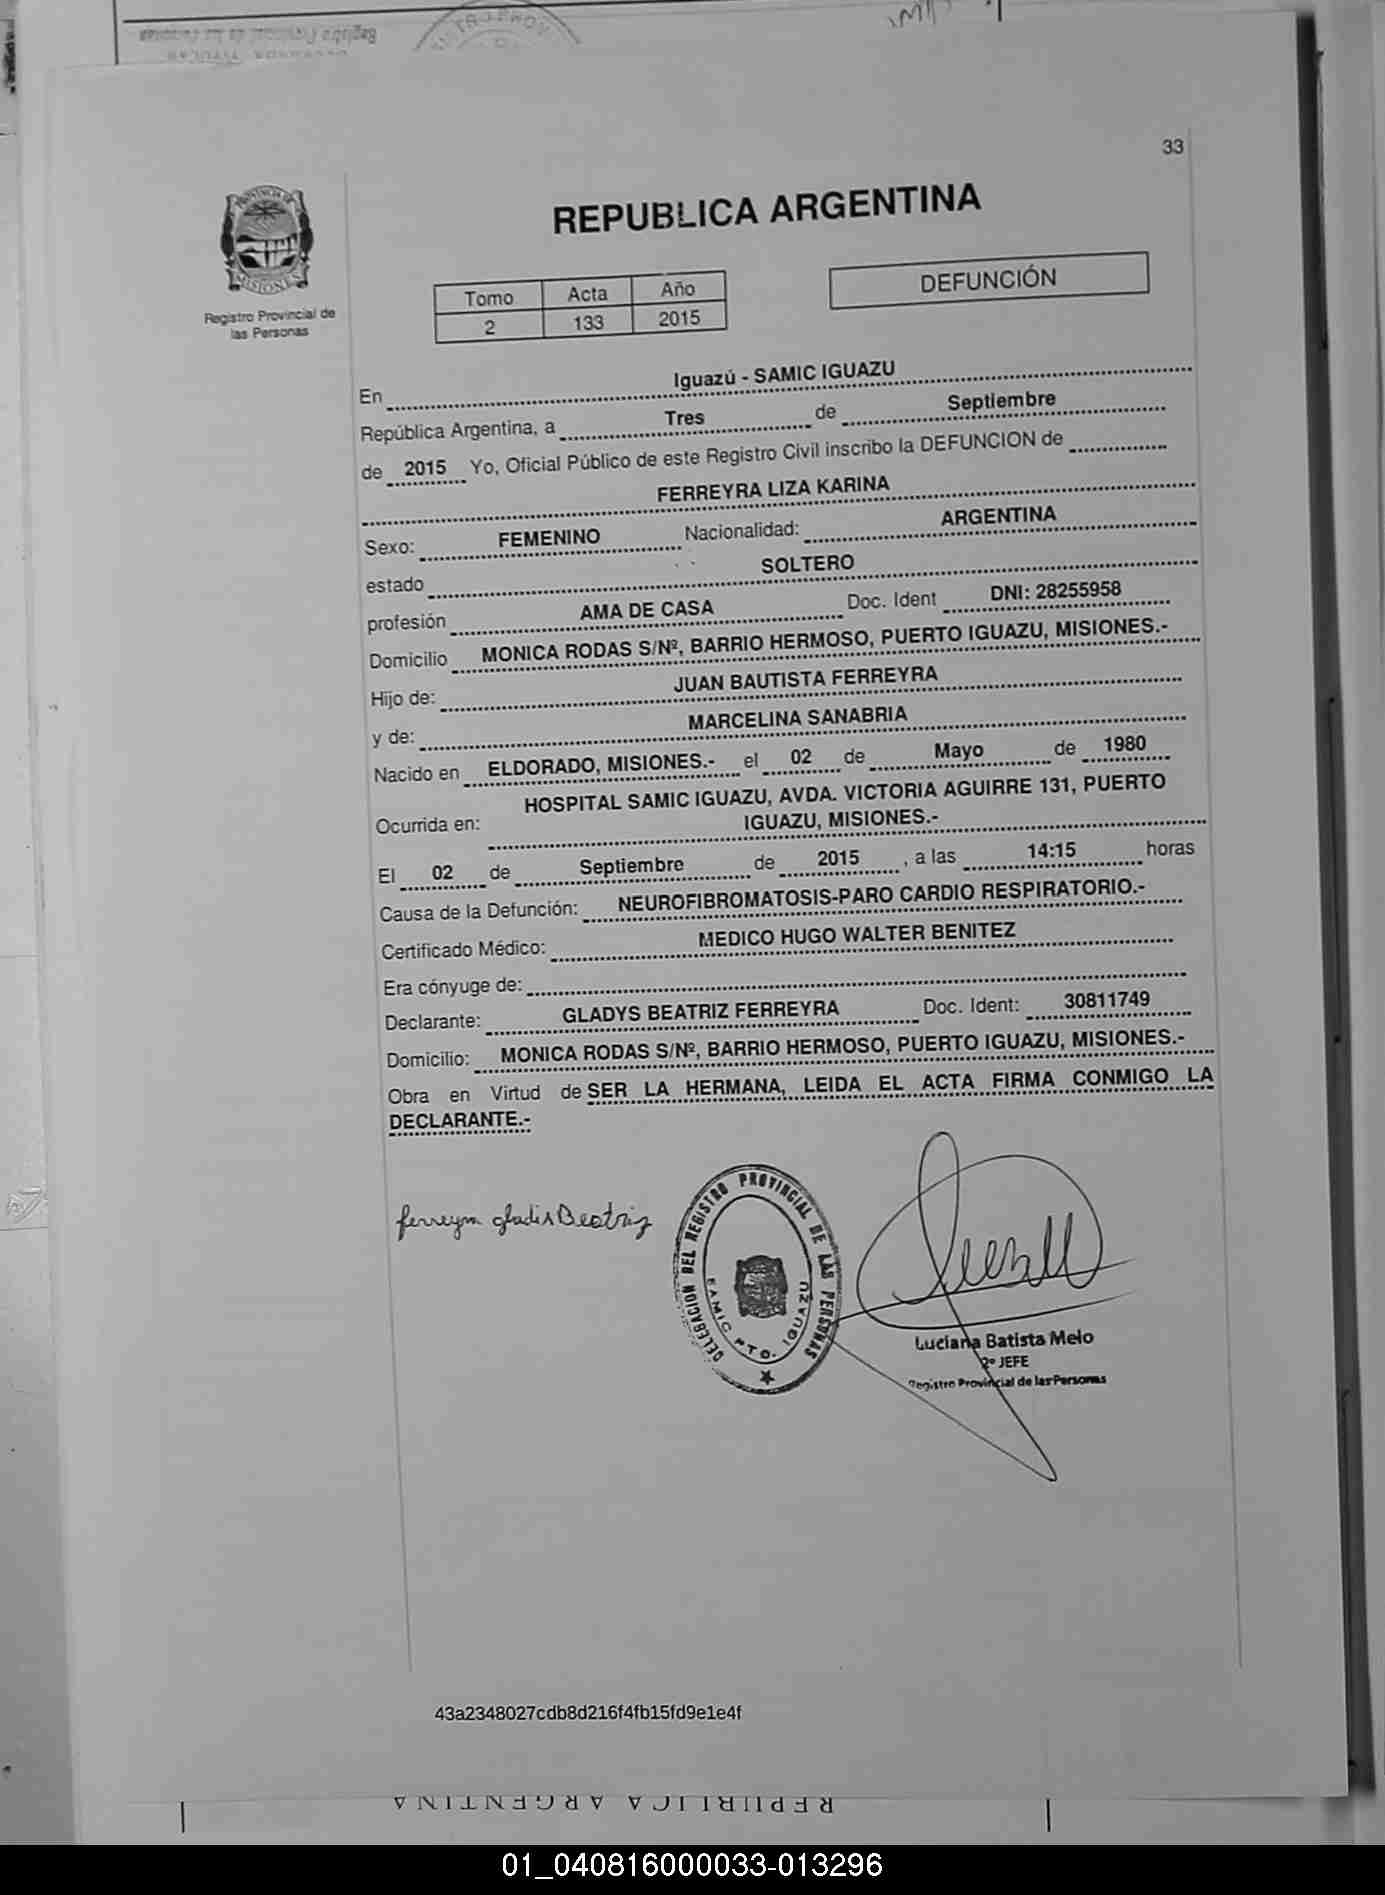 Registro Provincial de las Personas
33
PROVINCIA DE
MISIONES
Registro Provincial de
las Personas
REPUBLICA ARGENTINA
Tomo Acta Año
2 133 2015
DEFUNCIÓN
En Iguazú - SAMIC IGUAZU
República Argentina, a Tres de Septiembre
de 2015 Yo, Oficial Público de este Registro Civil inscribo la DEFUNCION de
FERREYRA LIZA KARINA
Sexo: FEMENINO Nacionalidad: ARGENTINA
estado SOLTERO
profesión AMA DE CASA Doc. Ident DNI: 28255958
Domicilio MONICA RODAS S/Nº, BARRIO HERMOSO, PUERTO IGUAZU, MISIONES.-
Hijo de: JUAN BAUTISTA FERREYRA
y de: MARCELINA SANABRIA
Nacido en ELDORADO, MISIONES.- el 02 de Mayo de 1980
HOSPITAL SAMIC IGUAZU, AVDA. VICTORIA AGUIRRE 131, PUERTO
Ocurrida en: IGUAZU, MISIONES.-
El 02 de Septiembre de 2015 , a las 14:15 horas
Causa de la Defunción: NEUROFIBROMATOSIS-PARO CARDIO RESPIRATORIO.-
Certificado Médico: MEDICO HUGO WALTER BENITEZ
Era cónyuge de:
Declarante: GLADYS BEATRIZ FERREYRA Doc. Ident: 30811749
Domicilio: MONICA RODAS S/Nº, BARRIO HERMOSO, PUERTO IGUAZU, MISIONES.-
Obra en Virtud de SER LA HERMANA, LEIDA EL ACTA FIRMA CONMIGO LA
DECLARANTE.-
ferreyra gladis Beatriz
DELEGACION DEL REGISTRO PROVINCIAL DE LAS PERSONAS
SAMIC PTO. IGUAZU
Luciana Batista Melo
2º JEFE
Registro Provincial de las Personas
43a2348027cdb8d216f4fb15fd9e1e4f
REPUBLICA ARGENTINA
01_040816000033-013296